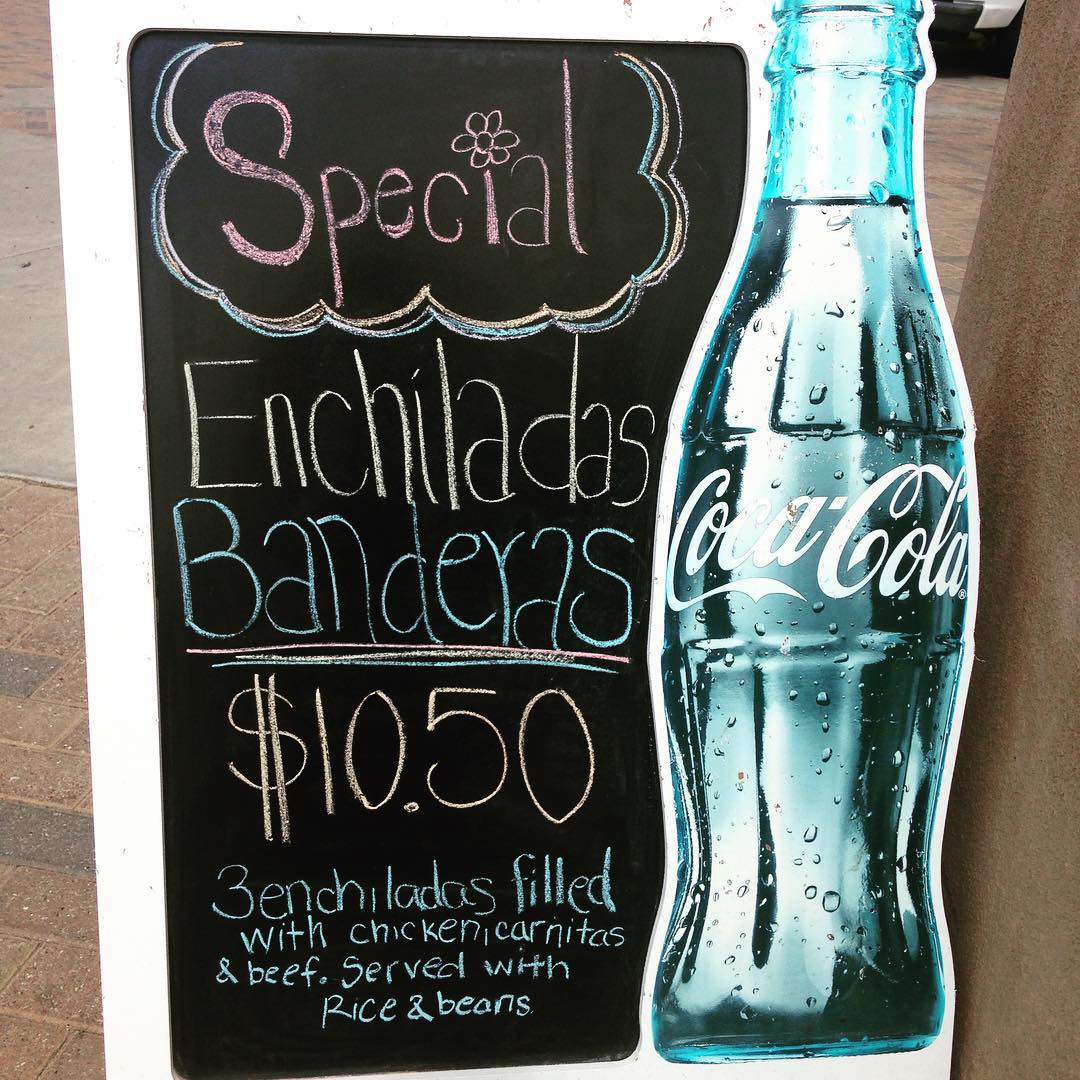 Special
Enchiladas
Banderas
$10.50
3 enchiladas filled
with chicken, carnitas
& beef. Served with
Rice & beans.
Coca-Cola®